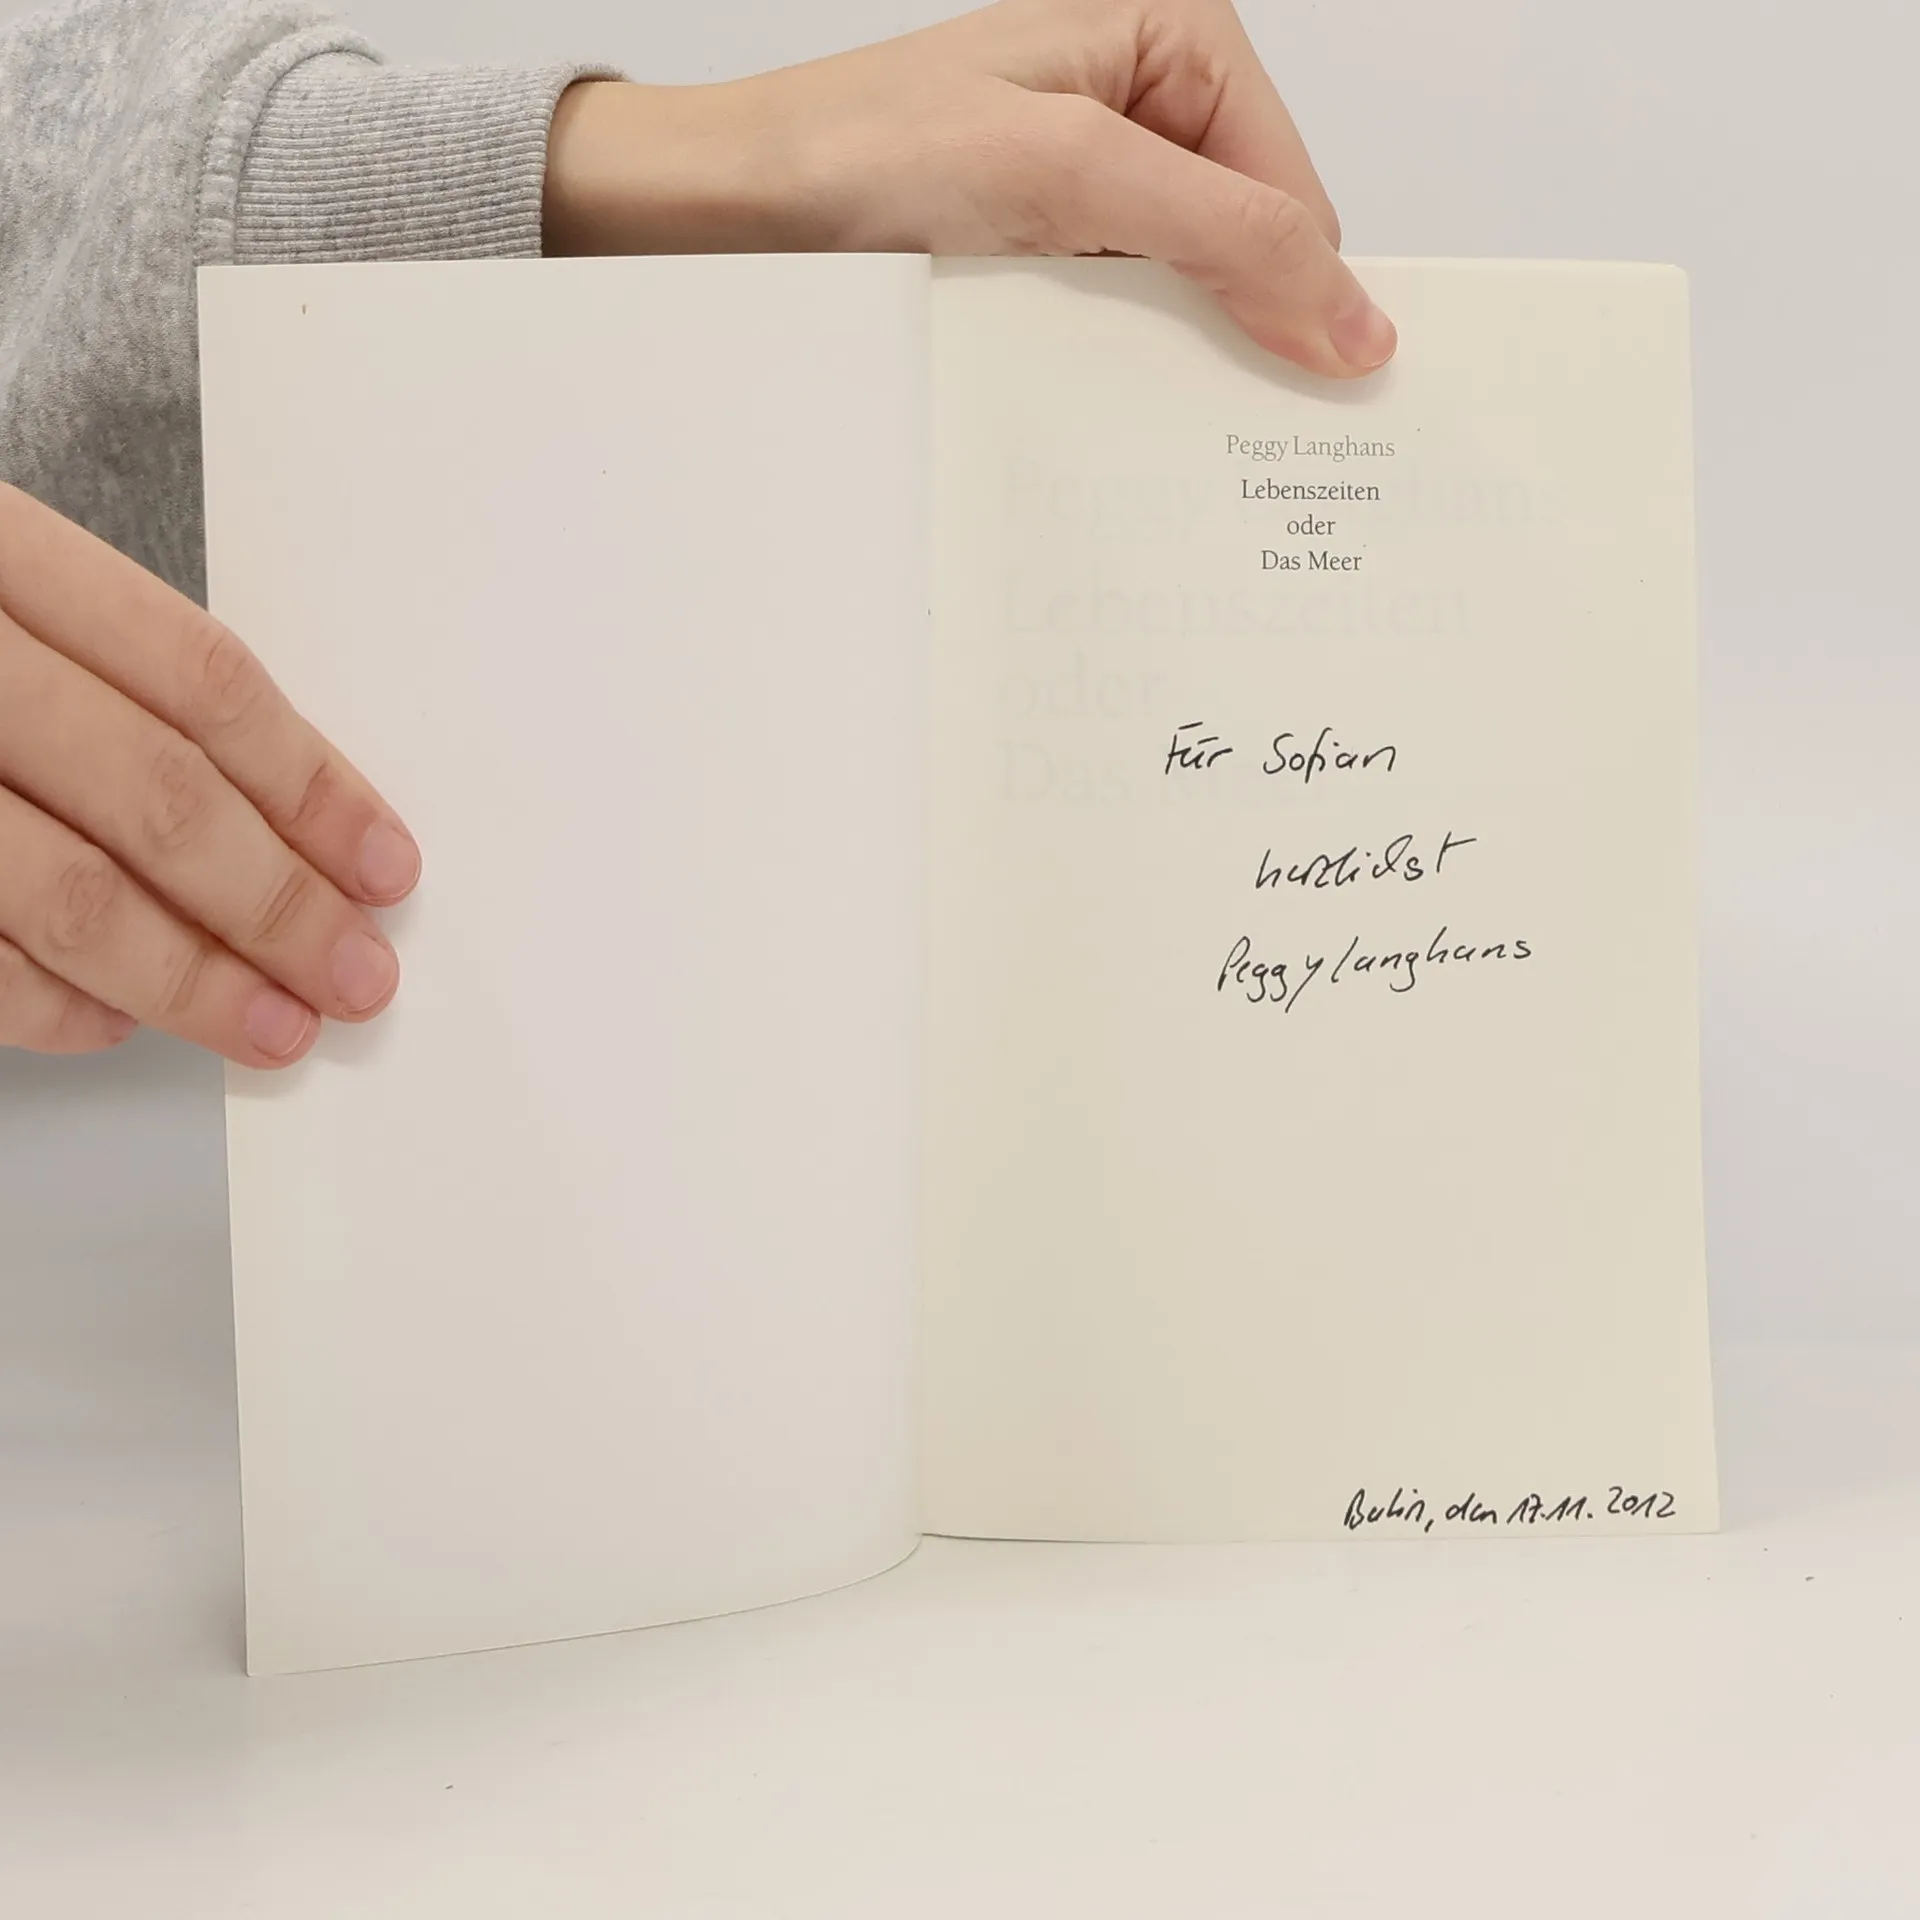 Peggy Langhans
Lebenszeiten
oder
Das Meer
Für Sofian
herzlichst
Peggy Langhans
Berlin, den 17.11.2012